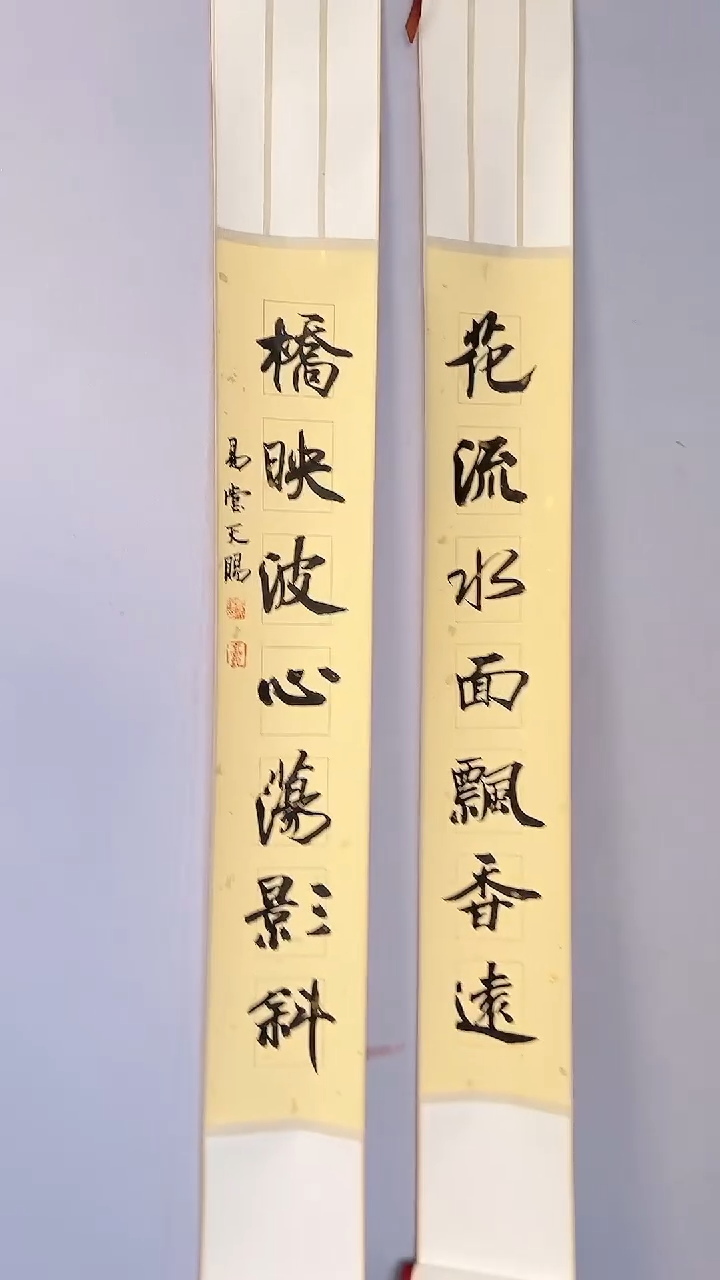 花流水面飄香遠
橋映波心蕩影斜
易雲天賜